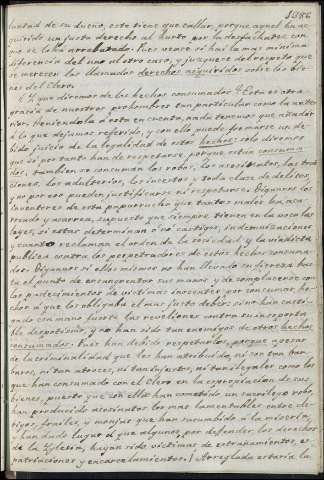 1386
luntad de su dueño, este tiene que callar, porque aquel ha ad-
quirido un justo derecho al hurto por la desfachatez con
que se lo ha arrebatado. Pues vease si hai la mas minima
diferencia del uno al otro caso, y juzguese del respeto que
se merecen los llamados derechos adquiridos sobre los bie-
nes del Clero.
¿Y que diremos de los hechos consumados? Esta es otra
gracia de nuestros prohombres tan particular como la ante-
rior. Teniendola á esta en cuenta, nada tenemos que añadir
á lo que dejamos referido, y con ello puede formarse un de-
bido juicio de la legalidad de estos hechos: solo diremos
que si por tanto han de respetarse porque estan consuma-
dos, tambien se consuman los robos, los asesinatos, las trai-
ciones, los adulterios, los incestos y toda clase de delitos,
y no por eso pueden justificarse ni respetarse. Digannos los
inventores de esta que tantos males ha aca-
rreado y acarrea, supuesto que siempre tienen en la boca las
leyes, si estas determinan ó no castigos, indemnizaciones
y cuanto reclaman el orden de la sociedad y la vindicta
publica contra los perpetradores de estos hechos consuma-
dos. Digannos si ellos mismos no han llevado su fiereza has-
ta el punto de ensangrentar sus manos y de complacerse con
los padecimientos de victimas inocentes por consumar he-
chos á que los obligaba el mas justo deber; si no han casti-
gado con mano fuerte las reveliones contra su insoporta-
ble despotismo, y no han sido tan enemigos de otros hechos
consumados. Pues han debido respetarlos, porque apesar
de la criminalidad que les han atribuido, ni son tan bar-
baros, ni tan atroces, ni tan injustos, ni tan ilegales como los
que han consumado con el Clero en la espropiacion de sus
bienes, puesto que con ella han cometido un sacrilego robo,
han producido asesinatos los mas lamentables entre cle-
rigos, frailes, y monjas que han sucumbido á la miseria,
y han dado lugar á que algunos, por defender los derechos
de la Yglesia, hayan sido victimas de estrañamientos, es-
patriaciones y encarcelamientos. ¡Arreglada estaria la